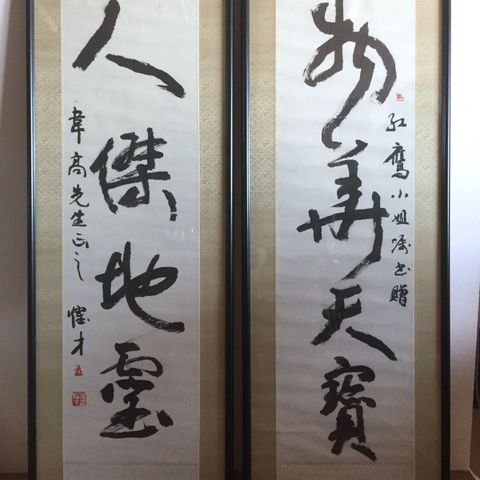 红鷹小姐嘱书贈
物華天寶
人傑地靈
韋高先生正之 才